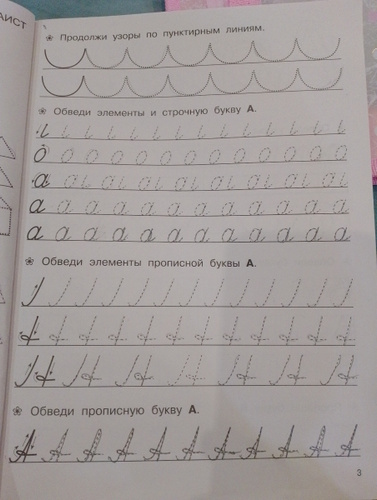 АИСТ
Продолжи узоры по пунктирным линиям.
Обведи элементы и строчную букву А.
а а а а а а а а а а а
а а а а а а а а а а а
Обведи элементы прописной буквы А.
Обведи прописную букву А.
А А А А А А А А А А А
3